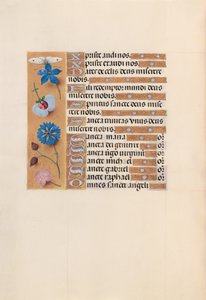 Xpriste audi nos.
Xpriste exaudi nos.
Pater de celis deus miserere
nobis.
Fili redemptor mundi deus
miserere nobis.
Spiritus sancte deus misere
re nobis.
Sancta trinitas unus deus
miserere nobis.
Sancta maria or
Sancta dei genitrix or
Sancta virgo virginum or
Sancte michael or
Sancte gabriel or
Sancte raphael or
Omnes sancti angeli